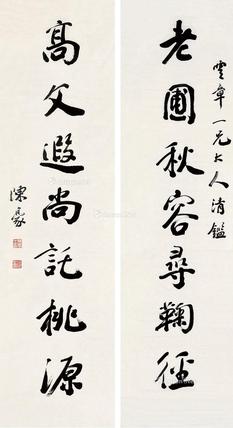 云章一兄大人清鑑
老圃秋容尋鞠徑
高父遐尚託桃源
陳豪